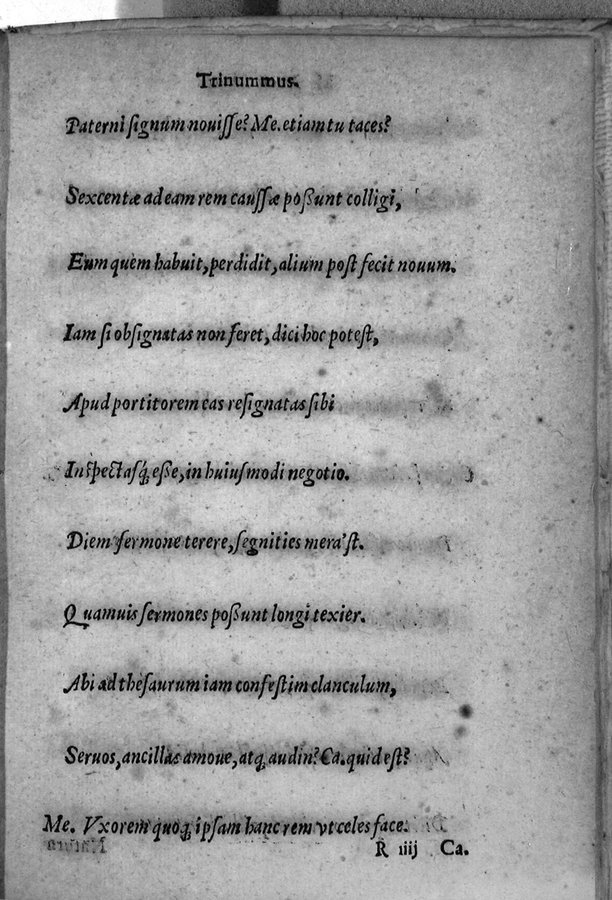 Trinummus.
Paterni signum nouisse? Me. etiam tu taces?
Sexcentæ ad eam rem caussæ poßunt colligi,
Eum quem habuit, perdidit, alium post fecit nouum.
Iam si obsignatas non feret, dici hoc potest,
Apud portitorem eas resignatas sibi
Inspectasq́; eße, in huiusmodi negotio.
Diem sermone terere, segnities mera'st.
Quamuis sermones poßunt longi texier.
Abi ad thesaurum iam confestim clanculum,
Seruos, ancillas amoue, atq; audin? Ca. quid est?
Me. Vxorem quoq; ipsam hanc rem vt celes face.
R iiij Ca.